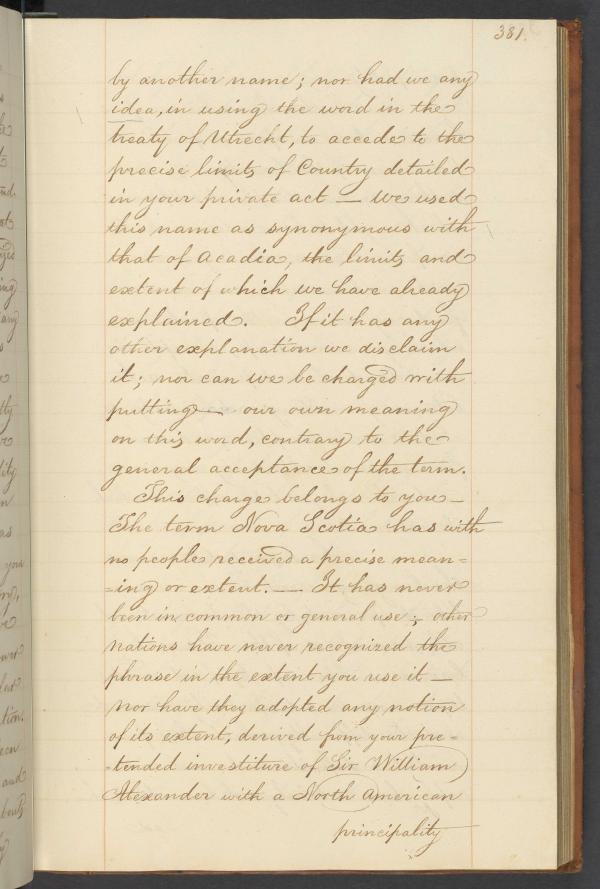 381.
by another name; nor had we any
idea, in using the word in the
treaty of Utrecht, to accede to the
precise limits of Country detailed
in your private act — We used
this name as synonymous with
that of Acadia, the limits and
extent of which we have already
explained. If it has any
other explanation we disclaim
it; nor can we be charged with
putting our own meaning
on this word, contrary to the
general acceptance of the term.
This charge belongs to you —
The term Nova Scotia has with
no people received a precise mean=
=ing or extent. — It has never
been in common or general use; other
nations have never recognized the
phrase in the extent you use it —
nor have they adopted any notion
of its extent, derived from your pre=
=tended investiture of Sir William
Alexander with a North American
principality